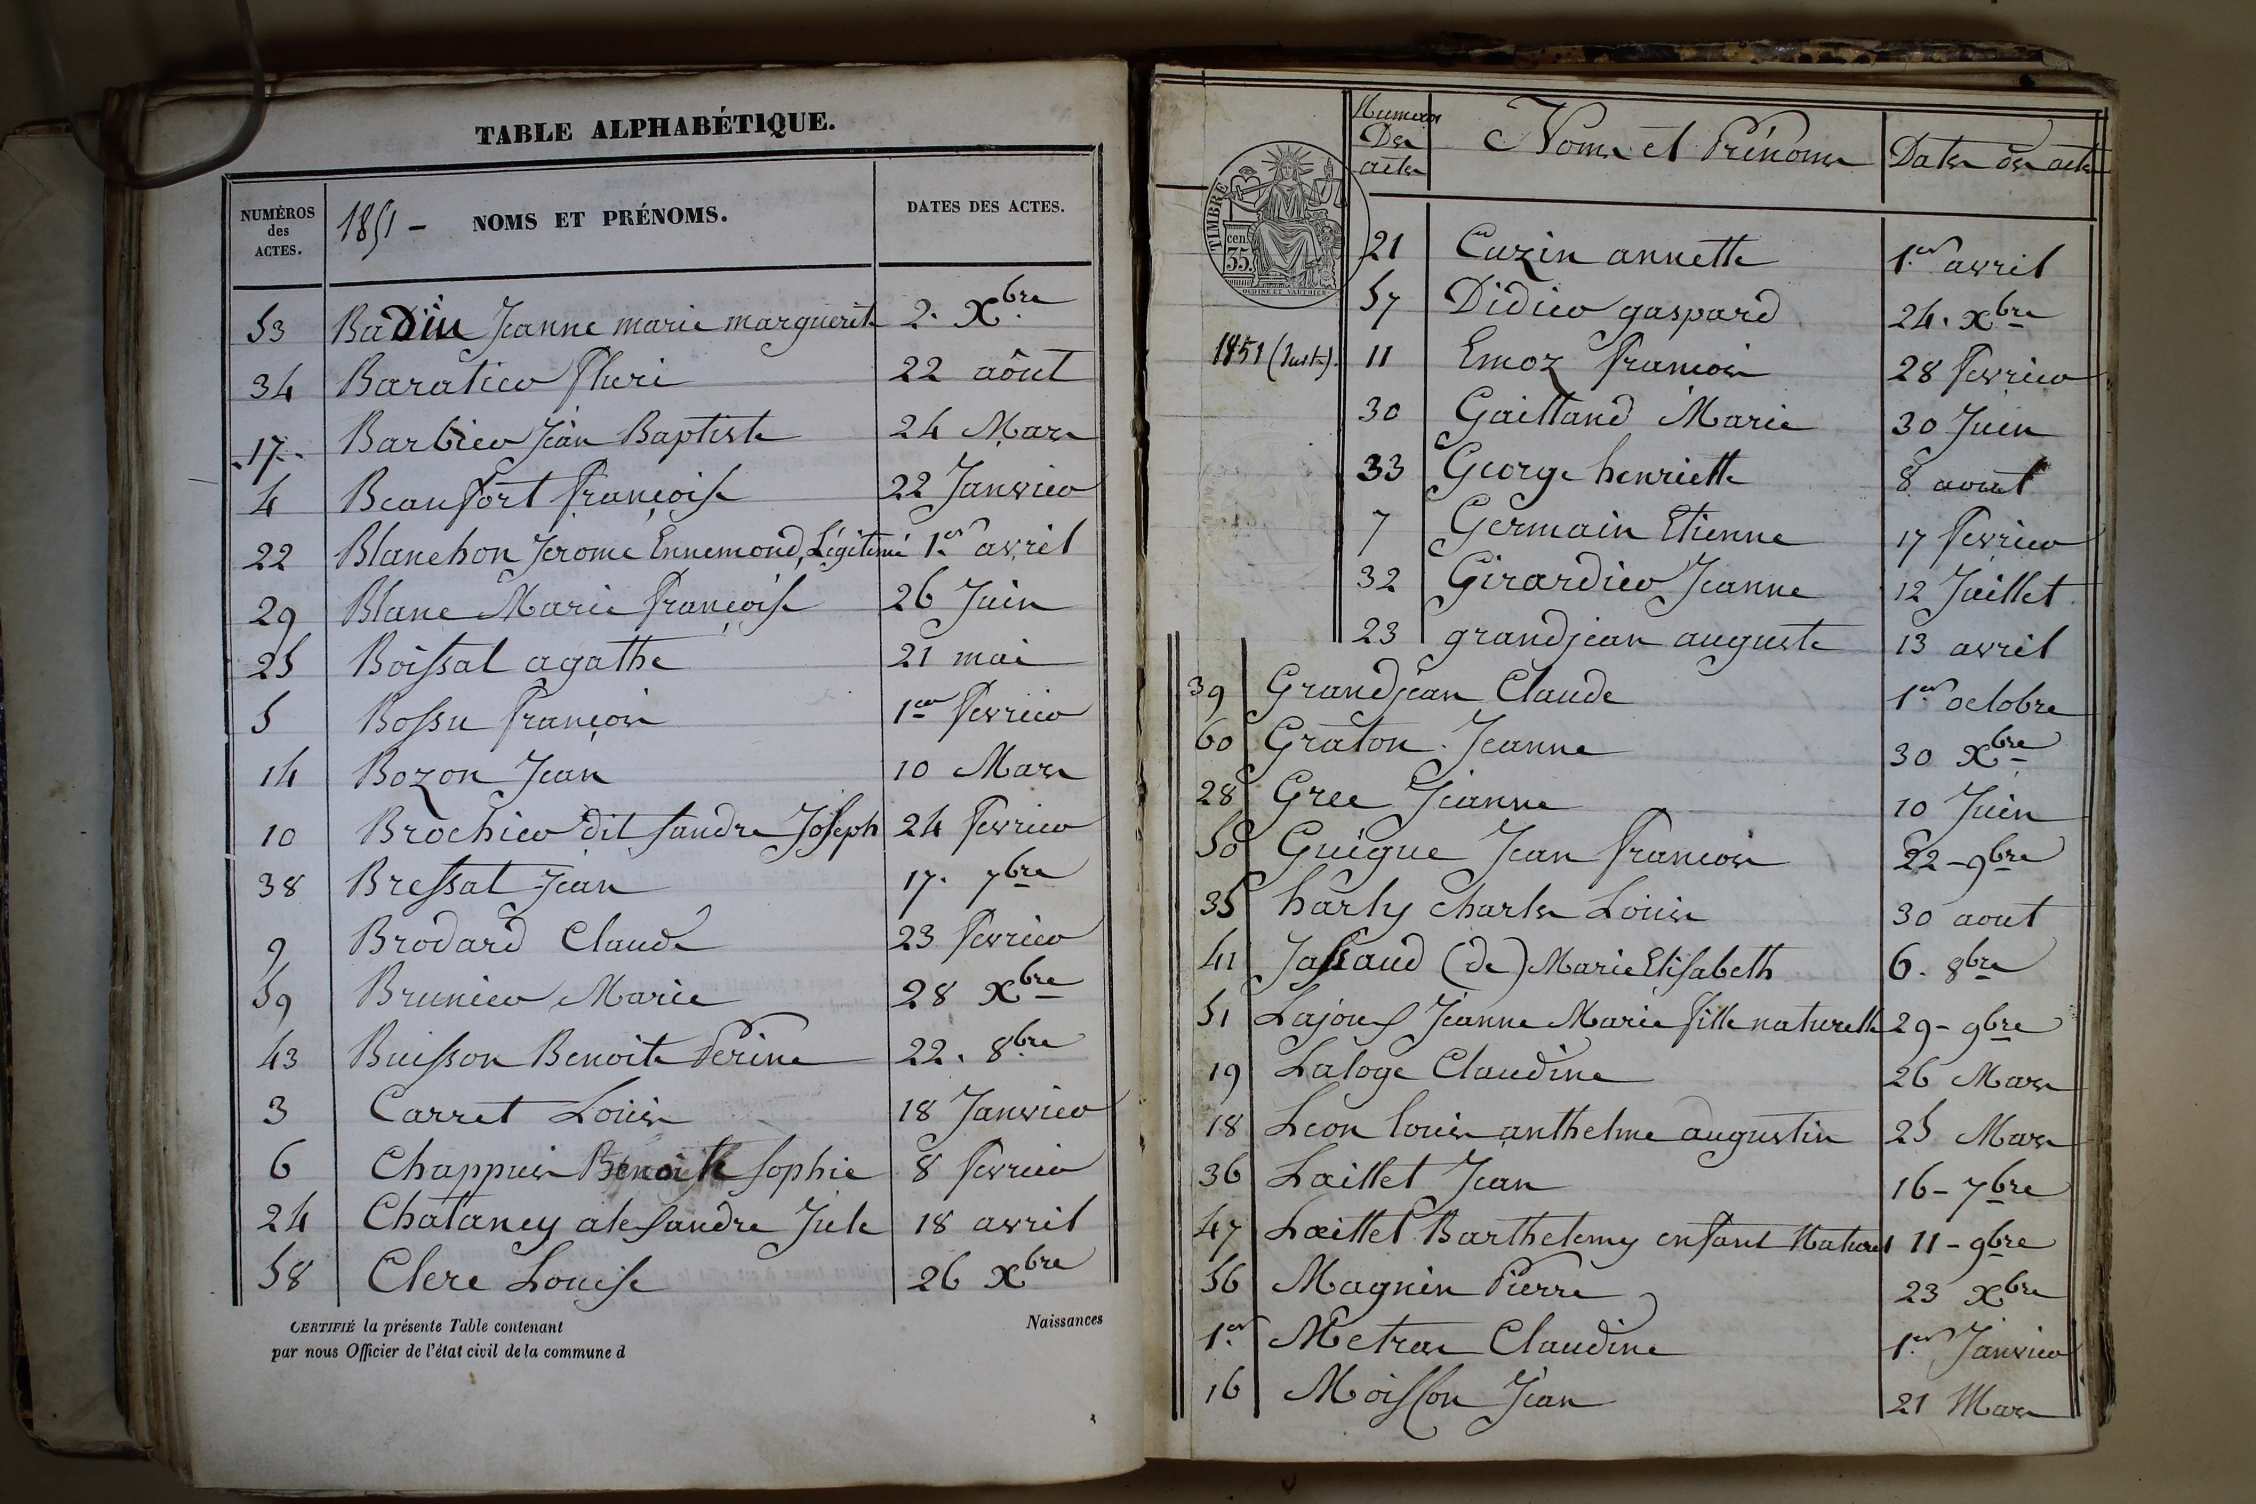 TABLE ALPHABÉTIQUE.
NUMÉROS des ACTES. 1851 - NOMS ET PRÉNOMS. DATES DES ACTES.
53 Badin Jeanne marie marguerite 2. Xbre
34 Baratier fleuri 22 aôut
17 Barbier Jean Baptiste 24 Mars
4 Beaufort françoise 22 Janvier
22 Blanchon Jerome Ennemond, Légitimé 1er avril
29 Blanc Marie françoise 26 Juin
25 Boissat agathe 21 mai
5 Bossu françois 1er fevrier
14 Bozon Jean 10 Mars
10 Brochier dit sandre Joseph 24 fevrier
38 Bressat Jean 17. 7bre
9 Brodard Claude 23 fevrier
59 Brunier Marie 28 Xbre
43 Buisson Benoite Perine 22. 8bre
3 Carret Louis 18 Janvier
6 Chappuis Benoite sophie 8 fevrier
24 Chatancy alesandre Jule 18 avril
58 Clere Louise 26 Xbre
CERTIFIÉ la présente Table contenant Naissances
par nous Officier de l'état civil de la commune d
Numéros Des actes Noms et Prénoms Dates des actes
TIMBRE
cen. 35.
OUDINÉ ET VAUTHIER
21 Cuzin annette 1er avril
57 Didier gaspard 24. Xbre
1851 (suite). 11 Emoz françois 28 fevrier
30 Gailland Marie 30 Juin
33 George henriette 8 aout
7 Germain Etienne 17 fevrier
32 Girardier Jeanne 12 Juillet
23 grandjean auguste 13 avril
39 Grandjean Claude 1er octobre
60 Graton Jeanne 30 Xbre
28 Gree Jeanne 10 Juin
50 Guigue Jean françois 22 - 9bre
35 harly Charles Louis 30 aout
41 (de) Marie Elisabeth 6. 8bre
51 Lajoux Jeanne Marie fille naturelle 29 - 9bre
19 Laloge Claudine 26 Mars
18 Leon louis anthelme augustin 25 Mars
36 Lœillet Jean 16 - 7bre
47 Lœillet Barthelemy enfant Naturel 11 - 9bre
56 Magnin Pierre 23 Xbre
1er Metras Claudine 1er Janvier
16 Moisson Jean 21 Mars